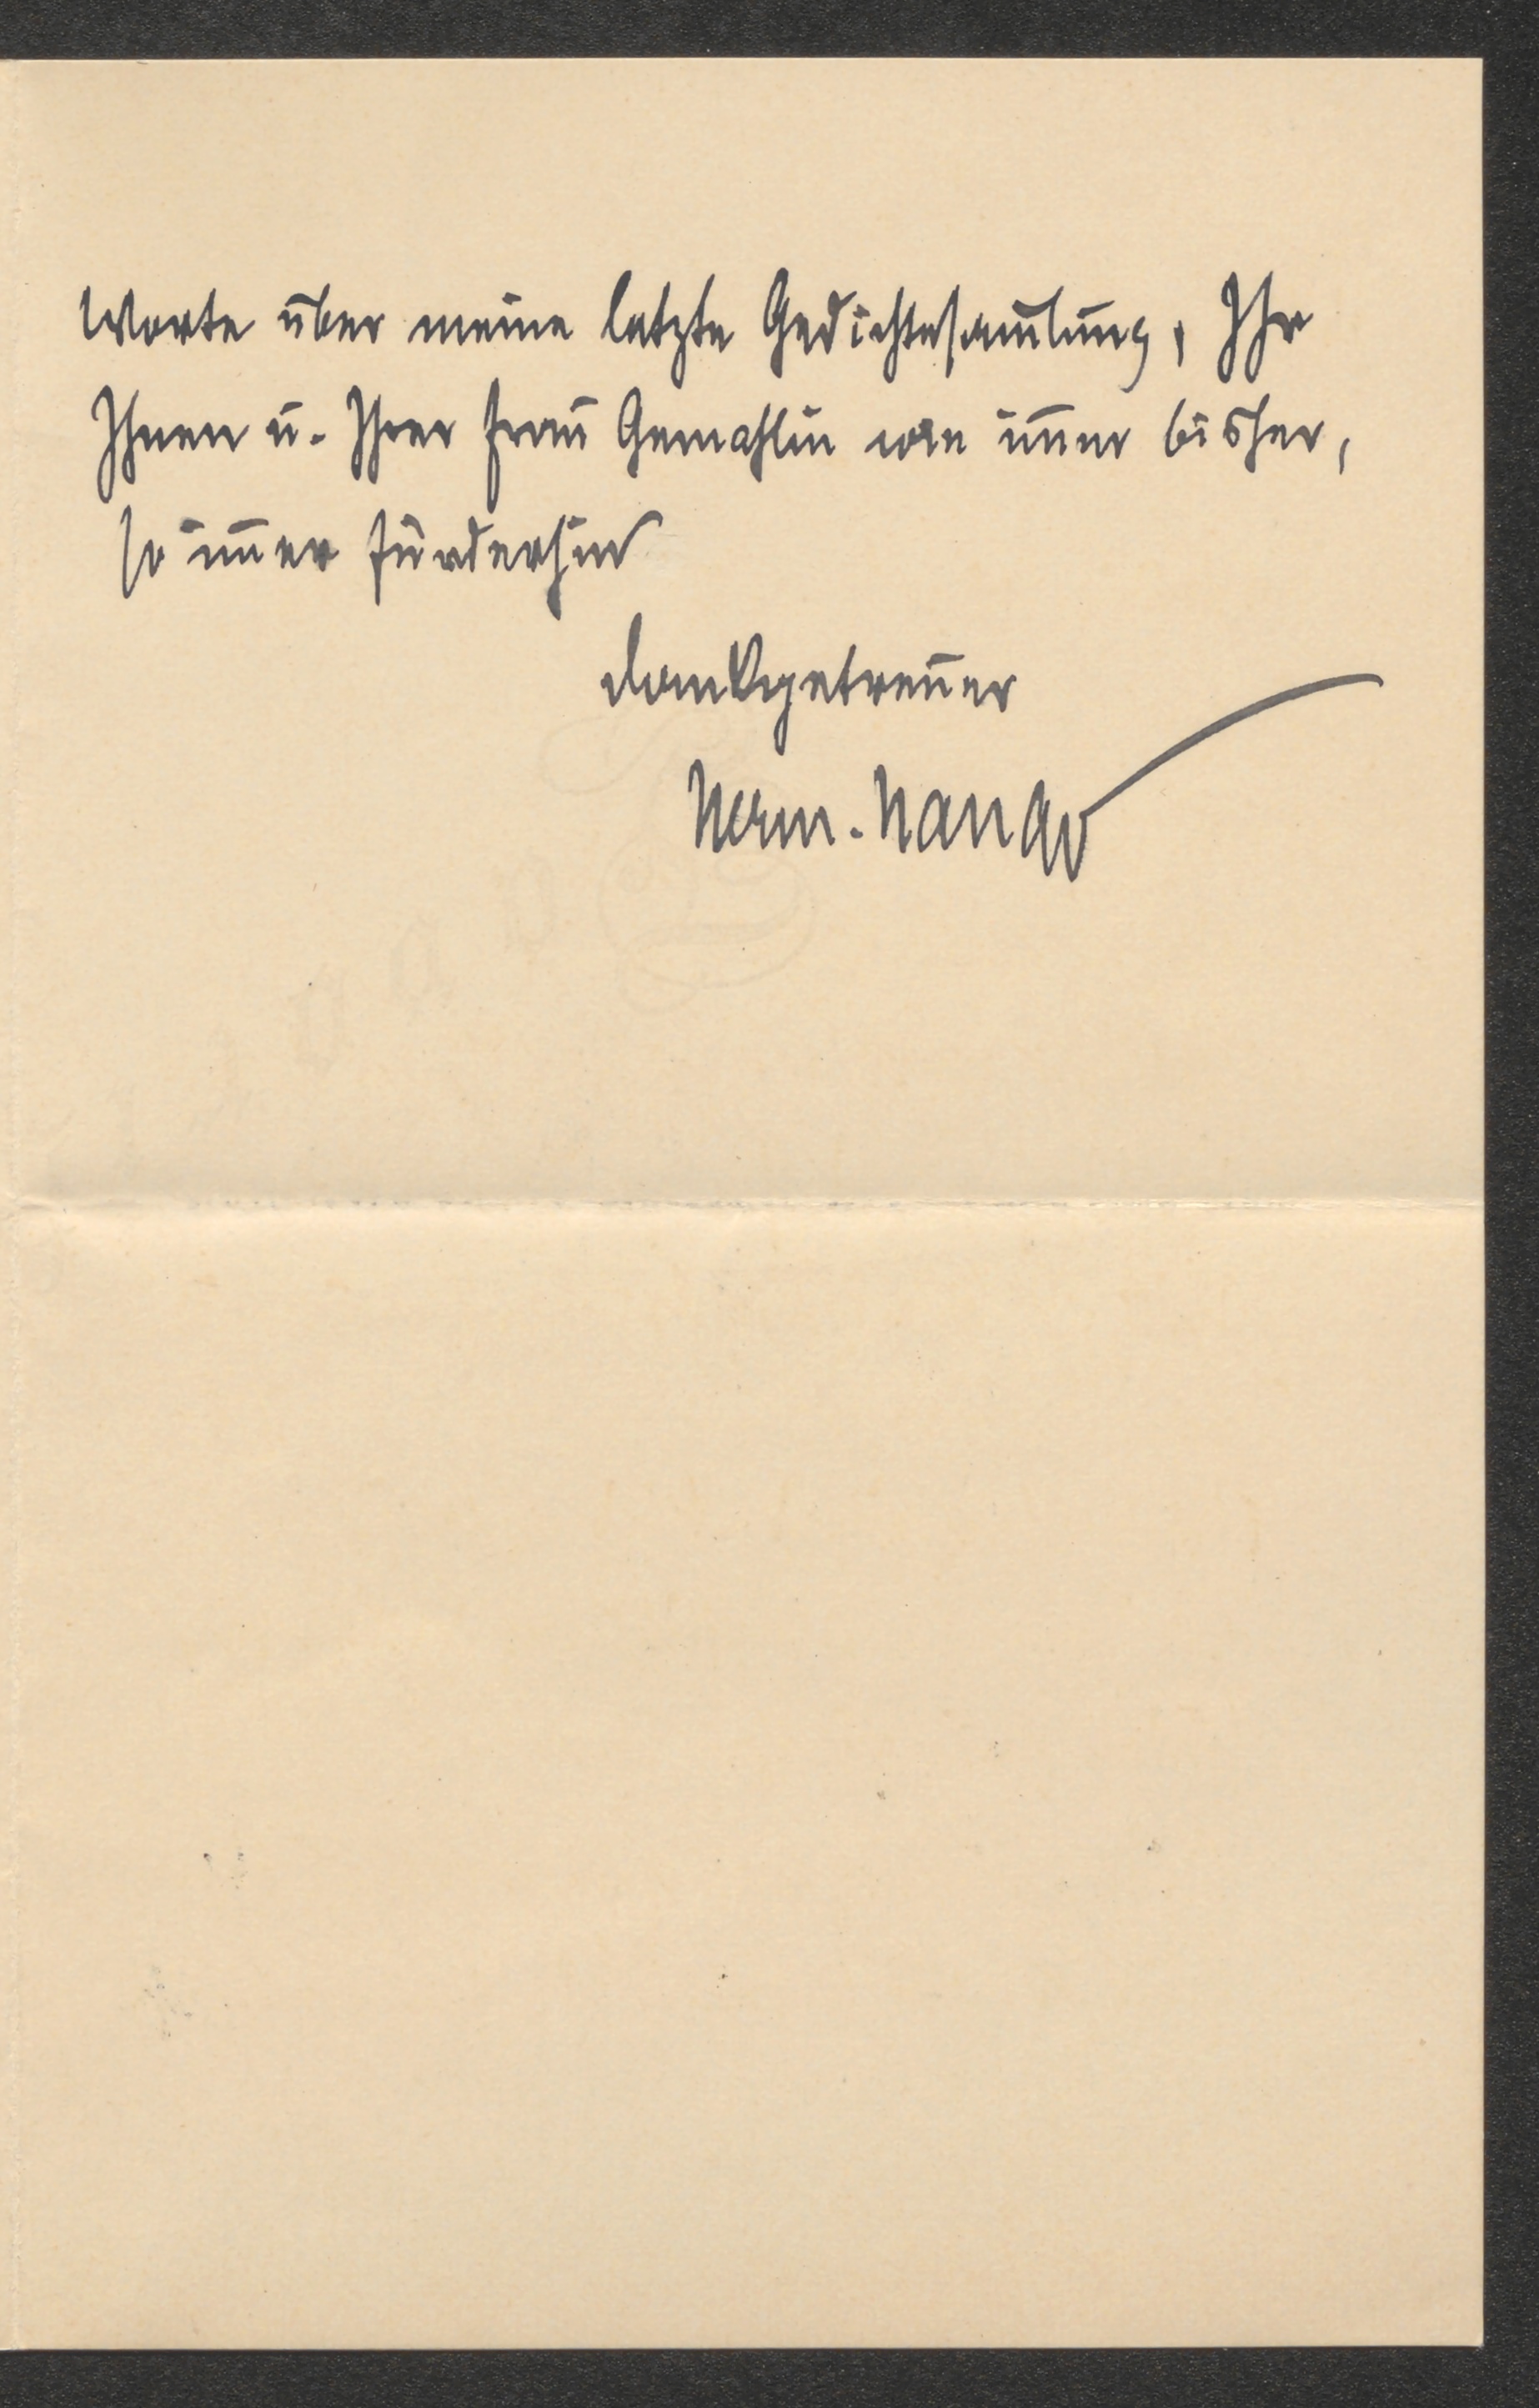 Worte über meine letzte Gedichtesam̅lung, Ihr
Ihnen u. Ihrer Frau Gemahlin wie im̅er bisher,
so im̅er fürderhin
dankgetreuer
Herm. Hango